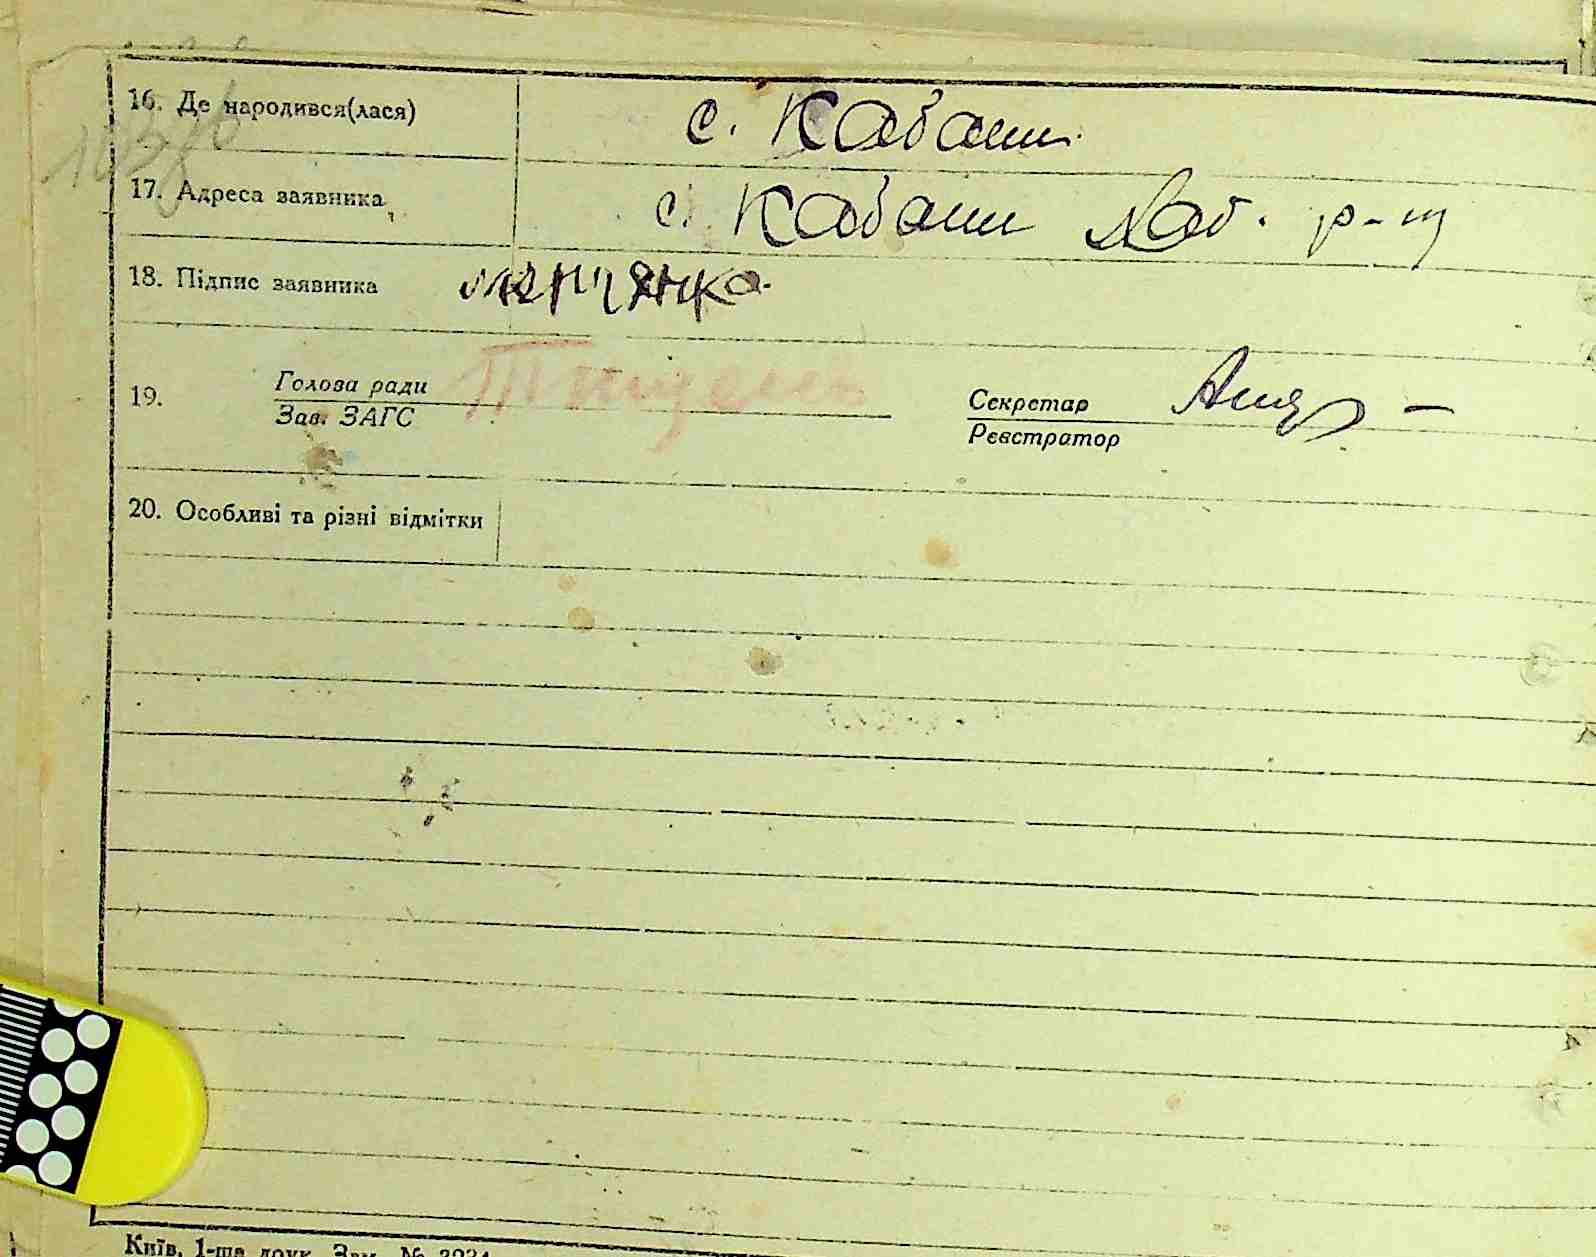 16. Де народився(лася) с. Кабани
17. Адреса заявника с. Кабани Каб. р-ну
18. Підпис заявника
19. Голова ради
Зав. ЗАГС
Секретар
Реєстратор
20. Особливі та різні відмітки
Київ, 1-ша друк. Зам. №